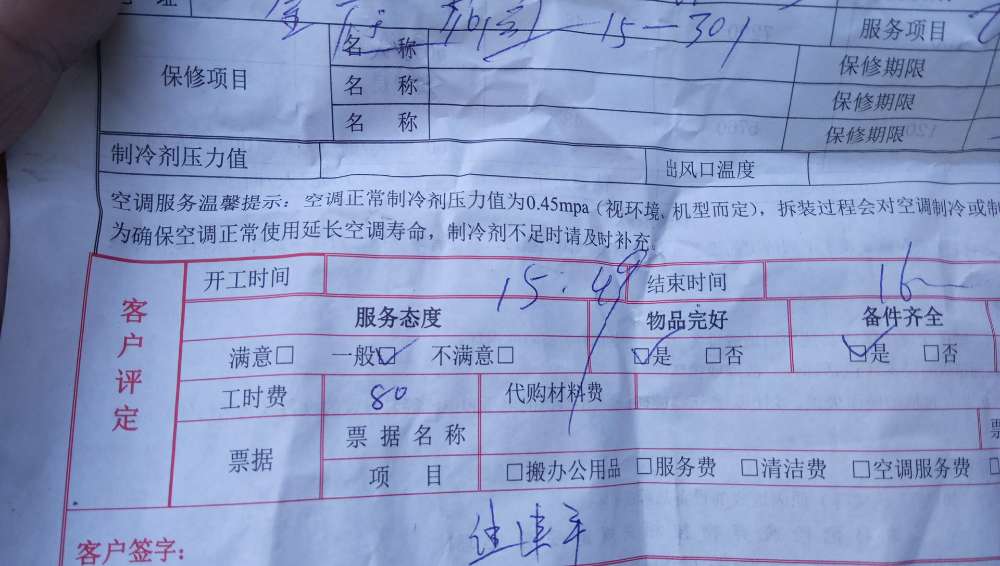 15-301 服务项目
保修项目 名 称 保修期限
名 称 保修期限
名 称 保修期限
制冷剂压力值 出风口温度
空调服务温馨提示：空调正常制冷剂压力值为0.45mpa（视环境、机型而定），拆装过程会对空调制冷或制
为确保空调正常使用延长空调寿命，制冷剂不足时请及时补充。
客户评定
开工时间 15:49 结束时间 16
服务态度 物品完好 备件齐全
满意□ 一般☑ 不满意□ ☑是 □否 ☑是 □否
工时费 80 代购材料费
票据 票据名称 票
项 目 □搬办公用品 □服务费 □清洁费 □空调服务费
客户签字：